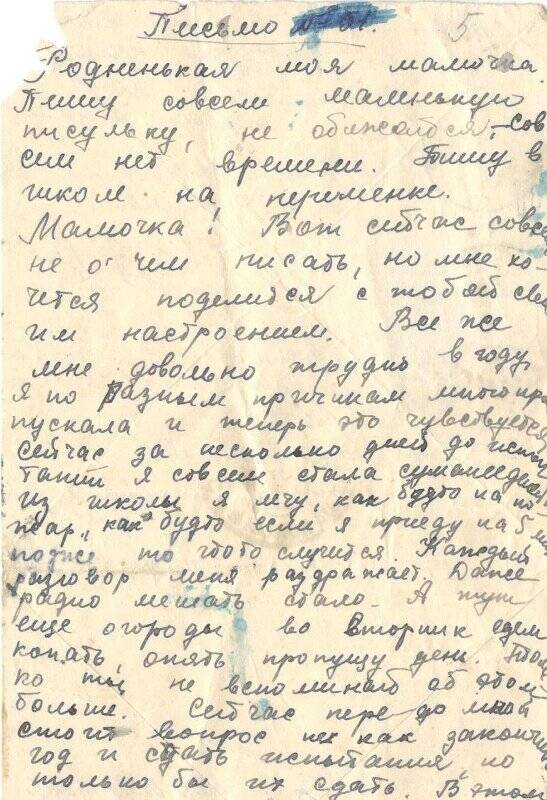 Письмо № 31. 5
Родненькая моя мамочка.
Пишу совсем маленькую
писульку, не обижайся, – сов
сем нет времени. Пишу в
школ на переменке.
Мамочка! Вот сейчас совсе
не о чем писать, но мне хо-
чется поделится с тобой сво
им настроением. Все же
мне довольно трудно в году
я по разным причинам много про
пускала и теперь это чувствуется
Сейчас за несколько дней до испы
таний я совсем стала сумашедшей
Из школы я мчу, как будто на по
жар, как будто если я приеду на 5 мин
позже то что то случится. Каждый
разговор меня раздражает. Даже
радио мешать стало. А тут
еще огороды во вторник едем
копать, опять пропущу день. Толь
ко ты не вспоминай об этом
больше. Сейчас передо мной
стоит вопрос не как закончить
год и сдать испытания но
только бы их сдать. В этом